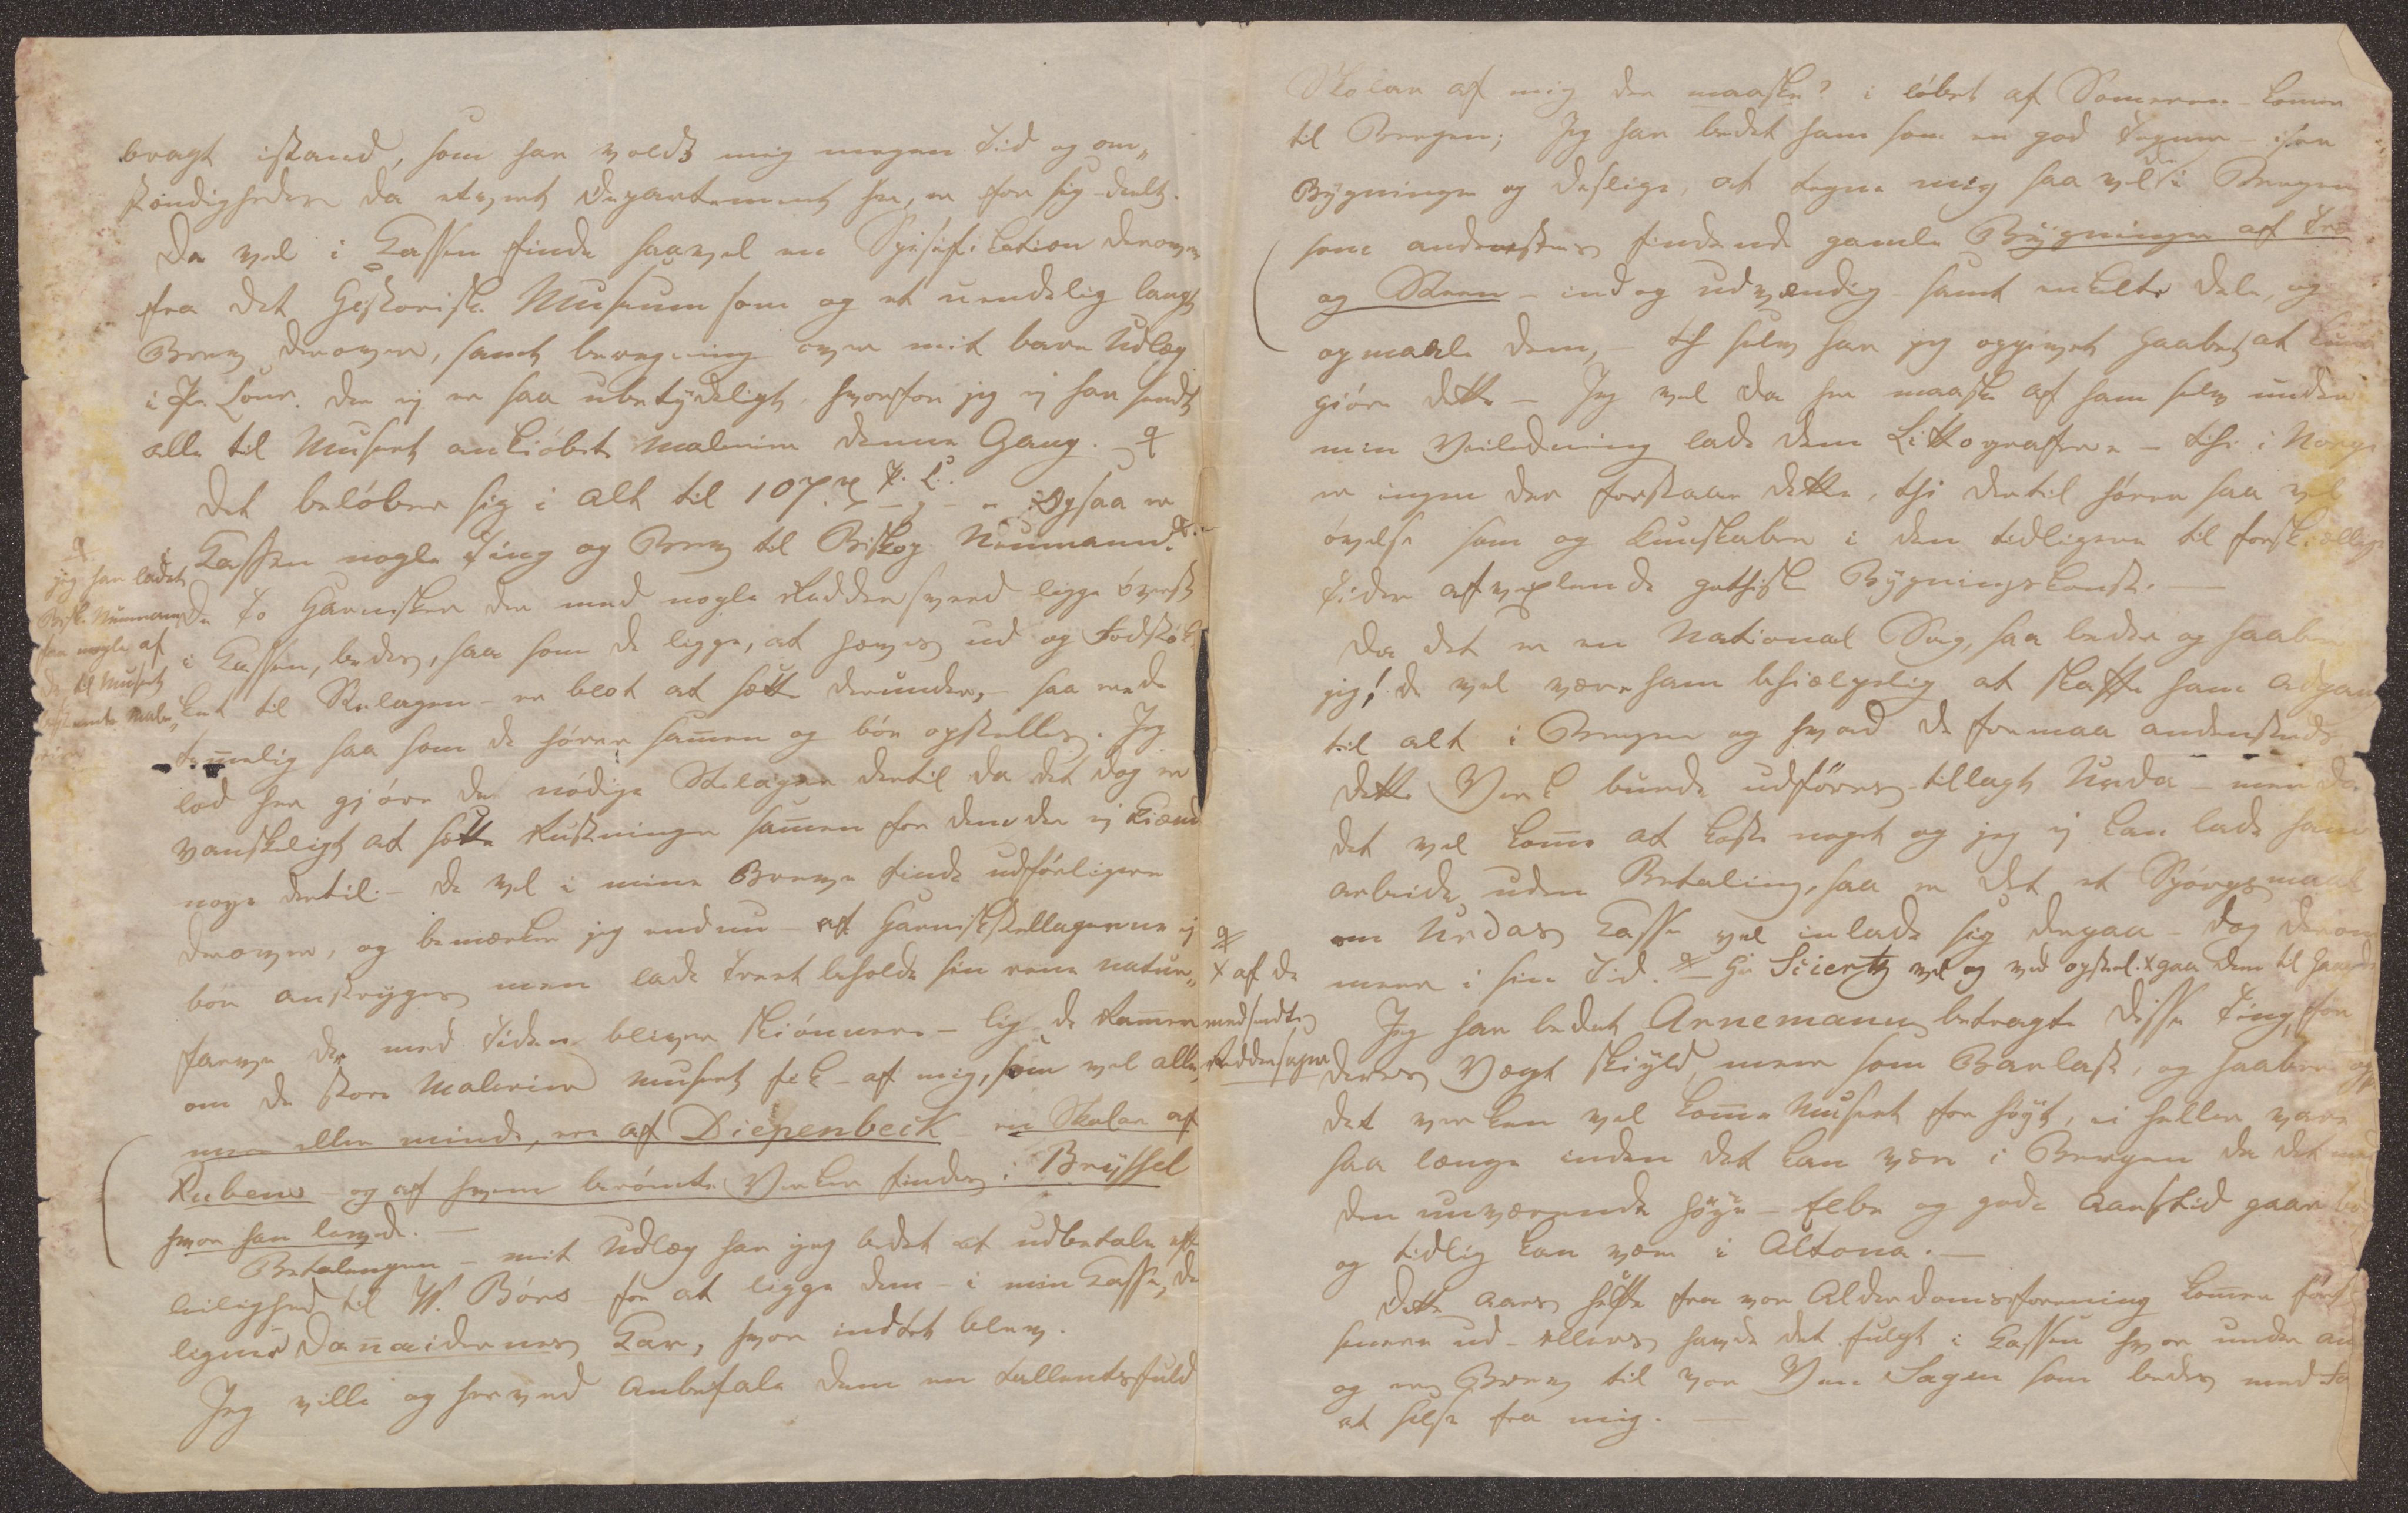 bragt istand, som har voldt mig megen Tid og om„
stændigheder da etvert Departement her, er for sig deelt.
De vil i Cassen finde saavel en Spesifikation derover
fra det Historiske Museum som og et uendelig langt
Brev derover, samt beregning over mit bare Udlæg
i Pr. Cour. der ej er saa ubetydeligt, hvorfor jeg ej har sendt
alle til Museet ankiøbte Malerier denne Gang.
Det beløber sig i alt til 107 ogsaa er
i Cassen nogle Ting og Brev til Biskop Neumann.
jeg har ladet
Bisk. Neumann
faa nogle af
de til Museet
bestemte Male„
rier
De to Harnisker der med nogle Ridder sverd ligge øverst
i Cassen, bedes, saa som de ligge, at hæves ud og Fodstøk„
ket til Stelagen er blot at sætte derunder, saa ere de
temelig saa som de hører samen og bør opstelles. Jeg
lod her gjøre de nødige Stelager dertil da det dog er
vanskeligt at sætte Rustninger samen for dem der ej kiend
nøye dertil. De vil i mine Breve finde udførligere
derover, og bemærker jeg endnu at Harniskstellagerne ej
bør anstryges men lade Træet beholde sin rene natur„
farve der med Tiden bliver skiønnere – lig de Ramer
om de store Malerier Museet fik af mig, som vel alle,
meer eller minde, ere af Diepenbeck en Skolar af
Rubens og af hvem berømte Verker findes i Bryssel
hvor han levede.
Betalingen – mit Udlæg har jeg bedet at udbetale eft
leilighed til W. Børs for at ligge dem i min Casse, de
ligner Danaidernes Kar, hvor indtet blev.
Jeg ville og herved anbefale dem en tallentsfuld
Skolar af mig der maaske? i løbet af Someren komer
til Bergen; Jeg har bedet ham som en god Tegner især
Bygninger og deslige, at tegne mig saa vel i Bergen
som andensteds findende gamle Bygninger af Træ
og Steen – ind og udvændig samt enkelte dele, og
opmaale dem, – thi selv har jeg opgivet Haabet at kune
giøre dette – Jeg vil da her maaske af ham selv under
min Veiledning lade dem Littografere – thi i Norge
er ingen der forstaar dette, thi dertil hører saa vel
øvelse som og kunskaber i den tidligere til forskiællige
Tider afvexlende gothisk Bygningskonst.
Da det er en National Sag, saa beder og haaber
jeg! de vil være ham behiælpelig at skaffe ham adgan
til alt i Bergen og hvad de formaa andensteds
dette Verk burde udføres tillagt Urda – men da
det vil kome at koste noget og jeg ej kan lade ham
arbeide uden Betaling, saa er det et Spørgsmaal
om Urdas Casse vil inlade sig derpaa – dog derom
mere i sin Tid. Hr Sciertz vil og ved opstel. gaa dem til Haande
x af de
medsendte
Riddersager
Jeg har bedet Arnemann betragte disse Ting, for
deres Vægt skyld mere som Barlast, og haaber og
det verken vil kome Museet for høyt, ei heller vare
saa længe inden det kan være i Bergen da det med
den nuværende høye – Elbe og gode Aarstid gaar
og tidlig kan være i Altona.
Dette Aars Hefte fra vor Alderdomsforening komer først
senere ud – ellers havde det fulgt i Cassen hvor under an
og er Brev til vor Ven Sagen som bedes med
at hilse fra mig.